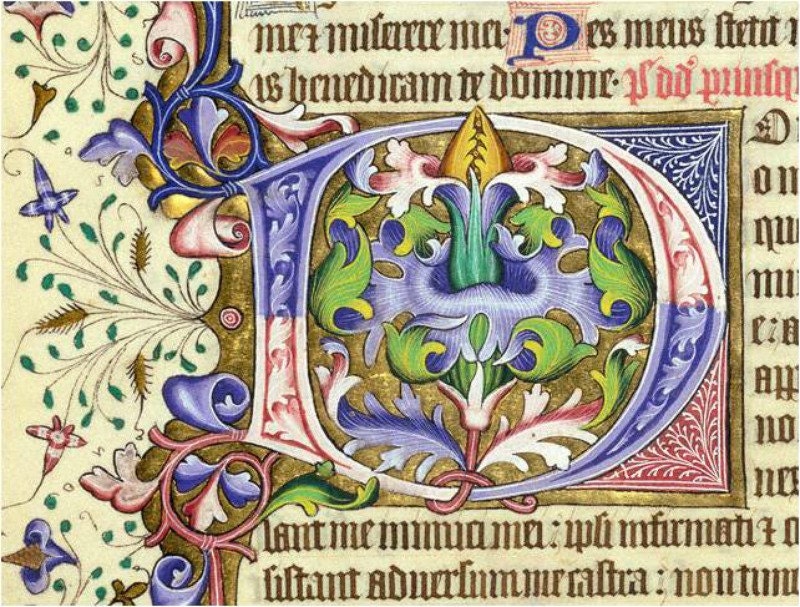 me ⁊ miserere mei: Pes meus stetit i
is benedicam te domine. ps dd priusq
D
o m
qu
mi
e: a
app
no
nes
lant me inimici mei: ipsi infirmati ⁊ c
sistant adversum me castra: non timu